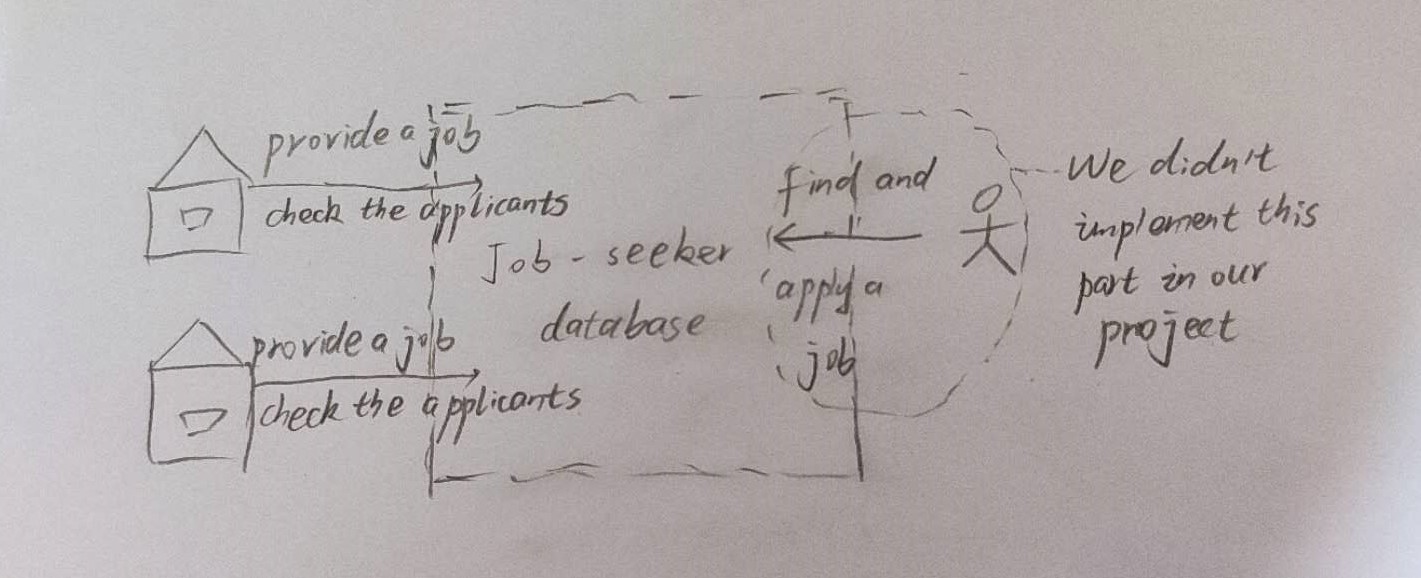 provide a job
check the applicants
provide a job
check the applicants
Job - seeker
database
find and
apply a
job
We didn't
implement this
part in our
project